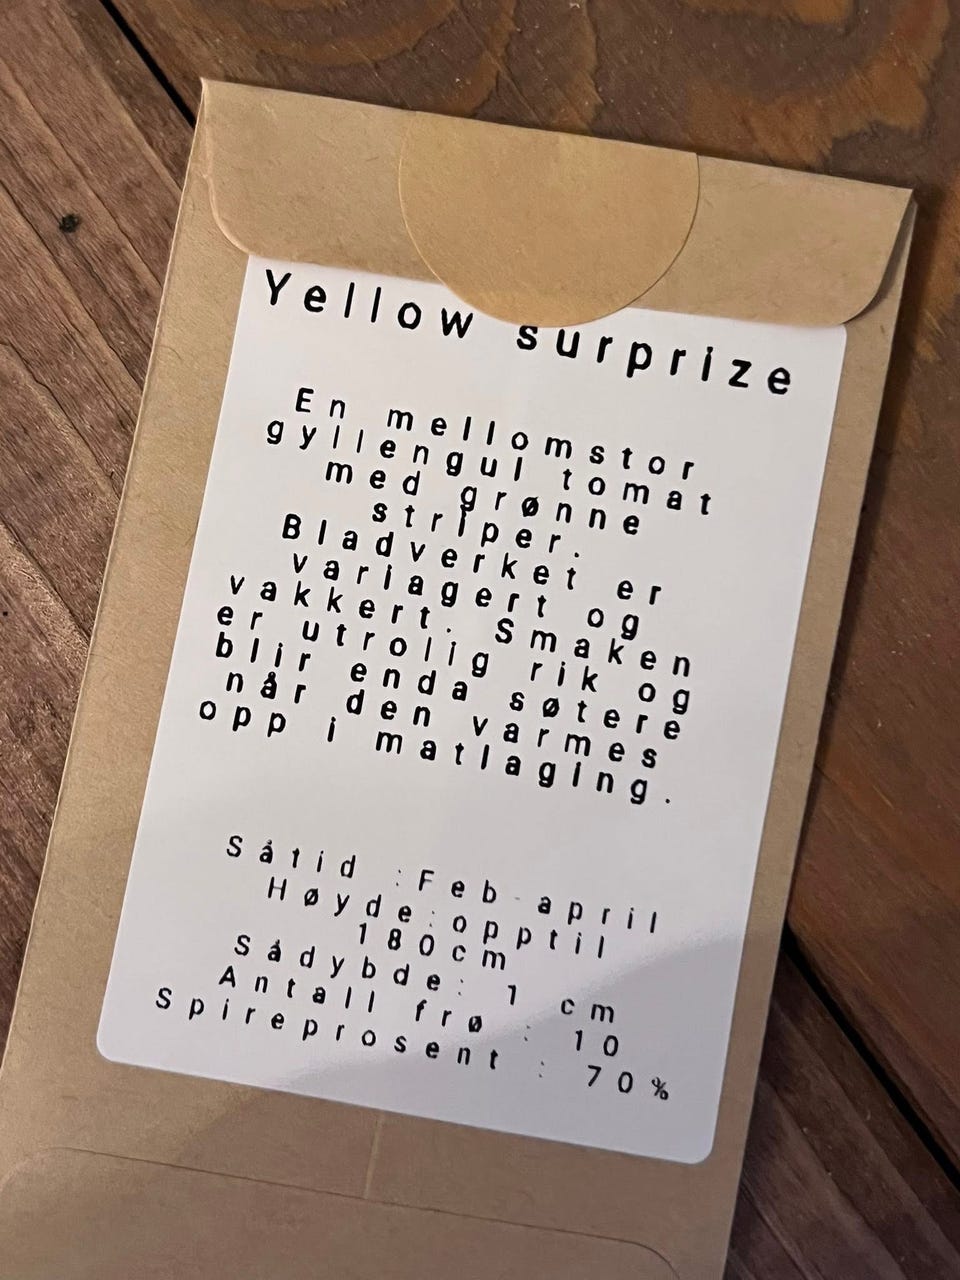 Yellow surprize
En mellomstor
gyllengul tomat
med grønne
striper.
Bladverket er
variagert og
vakkert. Smaken
er utrolig rik og
blir enda søtere
når den varmes
opp i matlaging.
Såtid :Feb-april
Høyde:opptil
180cm
Sådybde: 1 cm
Antall frø : 10
Spireprosent : 70%